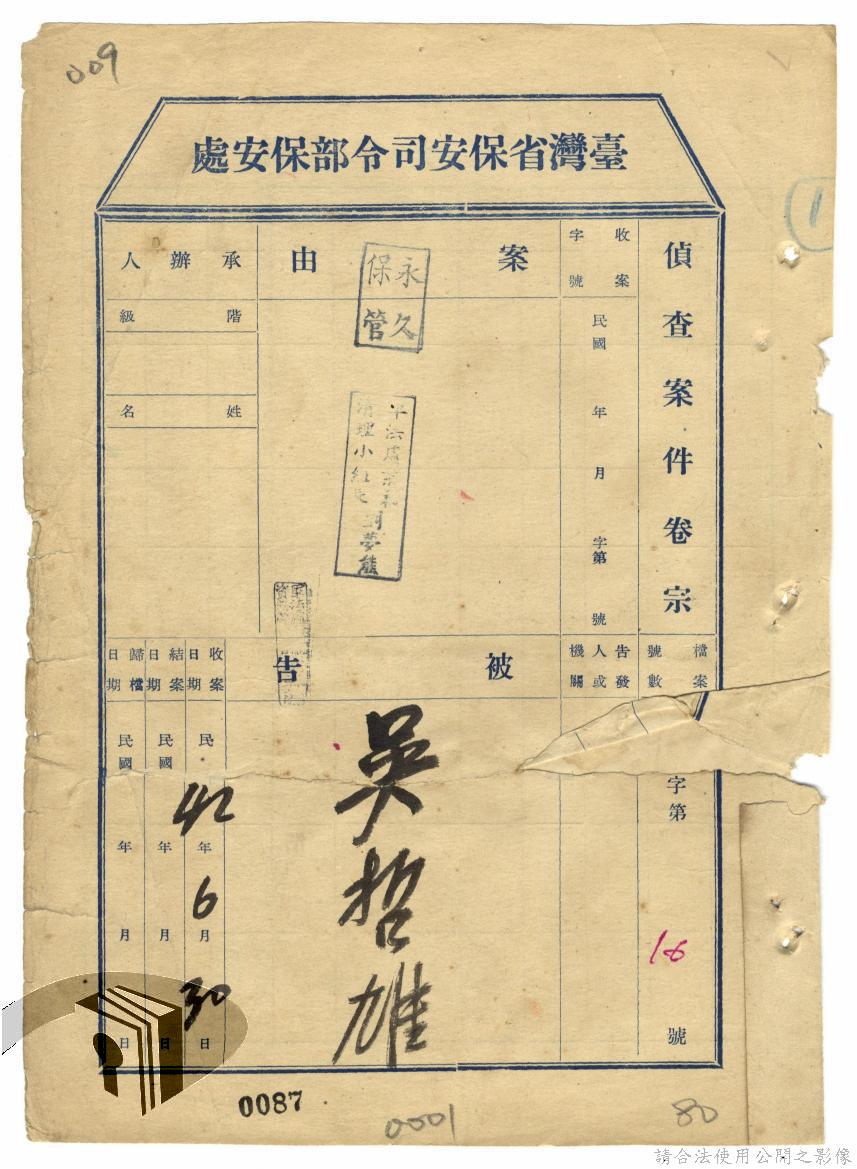 009
臺灣省保安司令部保安處
1
偵查案件卷宗
收案字號
民國 年 月 字第 號
案由
永久保管
清理小組長劉夢熊
承辦人
階級
姓名
檔案號數
字第 16 號
告發人或機關
被告
吳哲雄
收案日期
民 42年6月30日
結案日期
民國 年 月 日
歸檔日期
民國 年 月 日
0087
0001
80
請合法使用公開之影像